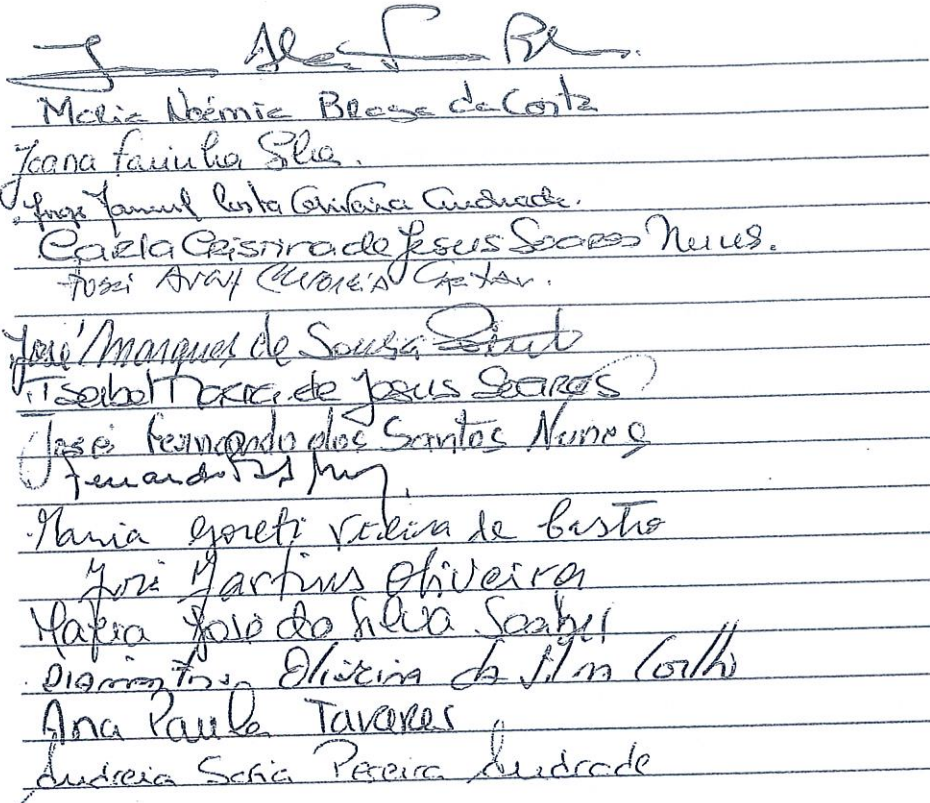 Maria Noémia Braga da Costa
Joana Farinha Silva.
Jorge Manuel Costa Andrade.
Carla Cristina de Jesus Soares Nunes.
José
José Marques de Sousa Pinto
Isabel Maria de Jesus Soares
José Fernando dos Santos Nunes
Fernando
Maria Goreti Vieira de Castro
José Martins Oliveira
Maria José da Silva Soares
Diamantina Oliveira da Silva Coelho
Ana Paula Tavares
Andreia Sofia Pereira Andrade